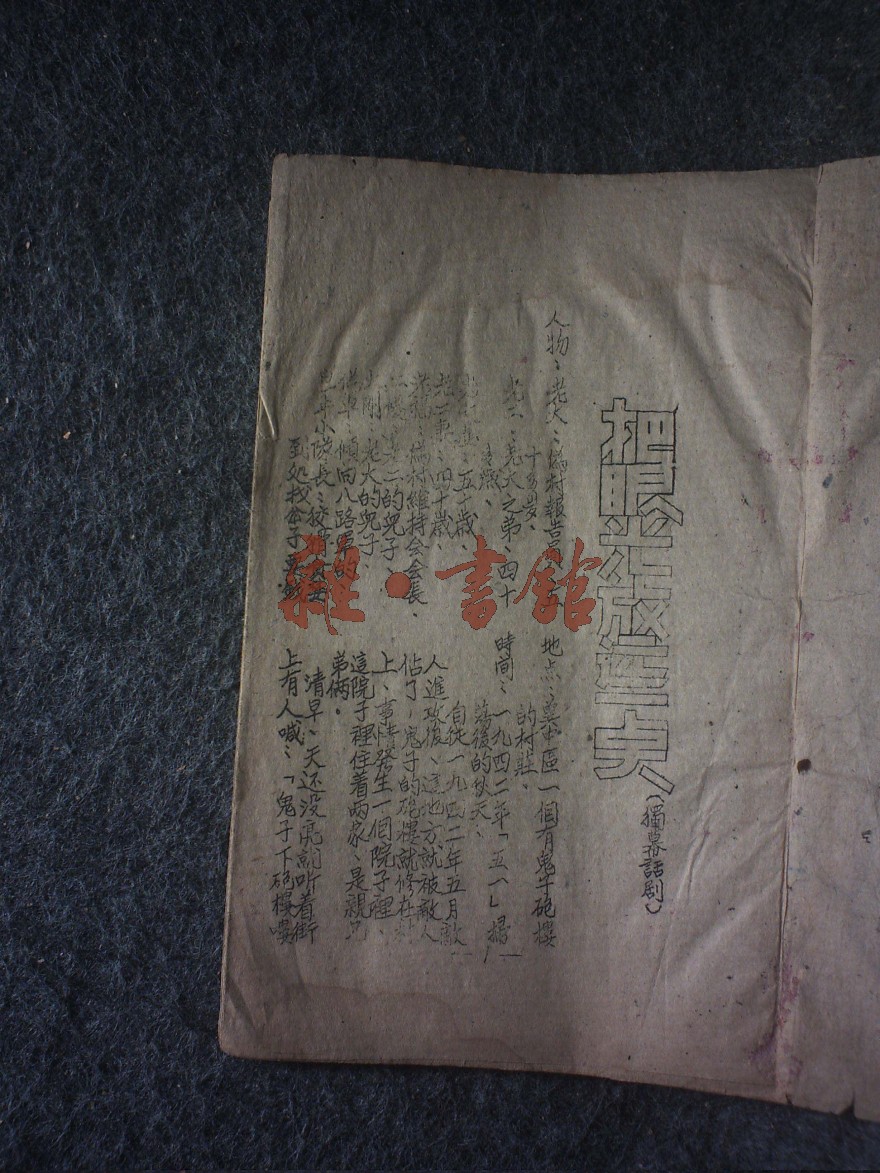 把眼光放远点
（獨幕話剧）
人物：老大：偽村報告員、
十多歲、
老二：老大之弟、四十
歲、
五十歲、
四十歲、
偽村維持会会長、
老二的兒子、
老大的兒子、
傾向八路軍的
小隊長：
到处找
地点：冀中區一個有鬼子砲樓
的村莊、
時间：一九四二年「五一」掃
蕩後的秋天、
自從一九四二年五月敵
人進攻後、這地方就被敵人
佔了，鬼子的砲樓就修在村
上、事情發生一個院子裡、
這院子裡住着兩家、是親兄
弟俩。
清早、天还没亮就听着街
上有人喊：「鬼子下砲樓嘍
雜·書館